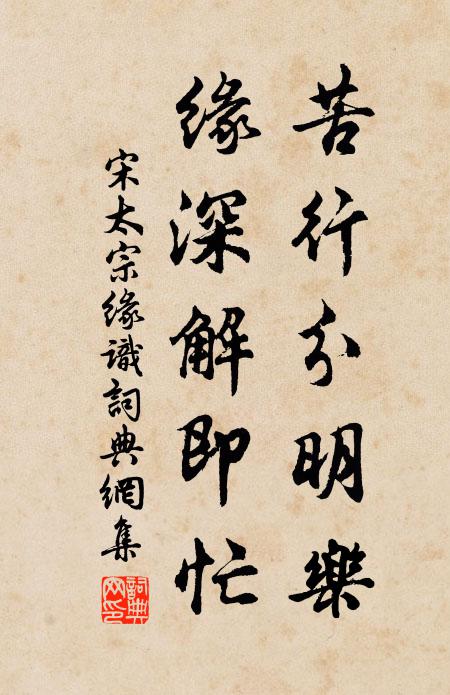 苦行分明樂
緣深解即忙
宋太宗緣識詞典網集
詞典網印